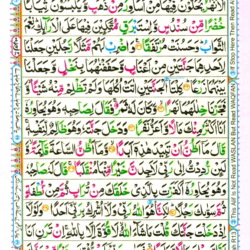 الْاَنْهٰرُ يُحَلَّوْنَ فِيْهَا مِنْ اَسَاوِرَ مِنْ ذَهَبٍ وَّيَلْبَسُوْنَ ثِيَابًا
خُضْرًا مِّنْ سُنْدُسٍ وَّاِسْتَبْرَقٍ مُّتَّكِـِٕيْنَ فِيْهَا عَلَى الْاَرَآئِكِ نِعْمَ
الثَّوَابُ وَحَسُنَتْ مُرْتَفَقًا وَاضْرِبْ لَهُمْ مَّثَلًا رَّجُلَيْنِ جَعَلْنَا
لِاَحَدِهِمَا جَنَّتَيْنِ مِنْ اَعْنَابٍ وَّحَفَفْنٰهُمَا بِنَخْلٍ وَّجَعَلْنَا
بَيْنَهُمَا زَرْعًا كِلْتَا الْجَنَّتَيْنِ اٰتَتْ اُكُلَهَا وَلَمْ تَظْلِمْ مِّنْهُ شَيْـًٔا
وَّفَجَّرْنَا خِلٰلَهُمَا نَهَرًا وَّكَانَ لَهٗ ثَمَرٌ فَقَالَ لِصَاحِبِهٖ وَهُوَ يُحَاوِرُهٗٓ
اَنَا اَكْثَرُ مِنْكَ مَالًا وَّاَعَزُّ نَفَرًا وَدَخَلَ جَنَّتَهٗ وَهُوَ ظَالِمٌ لِّنَفْسِهٖ
قَالَ مَآ اَظُنُّ اَنْ تَبِيْدَ هٰذِهٖٓ اَبَدًا وَّمَآ اَظُنُّ السَّاعَةَ قَآئِمَةً وَّ
لَئِنْ رُّدِدْتُّ اِلٰى رَبِّيْ لَاَجِدَنَّ خَيْرًا مِّنْهَا مُنْقَلَبًا قَالَ لَهٗ صَاحِبُهٗ
وَهُوَ يُحَاوِرُهٗٓ اَكَفَرْتَ بِالَّذِيْ خَلَقَكَ مِنْ تُرَابٍ ثُمَّ مِنْ نُّطْفَةٍ
ثُمَّ سَوّٰىكَ رَجُلًا لٰكِنَّا۠ هُوَ اللّٰهُ رَبِّيْ وَلَآ اُشْرِكُ بِرَبِّيْٓ اَحَدًا
If Stop Here Then Read
This Alif is Not Read WASLAN But Read WAQFAN